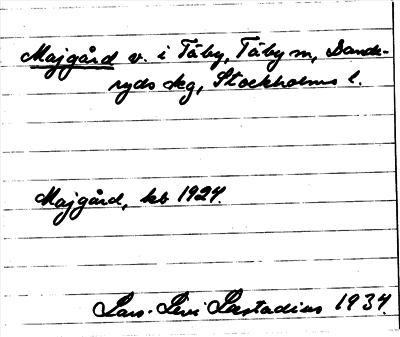 Majgård v. i Täby, Täby sn, Dande-
ryds skg, Stockholms l.
Majgård, kb 1927.
Lars-Levi Læstadius 1934.